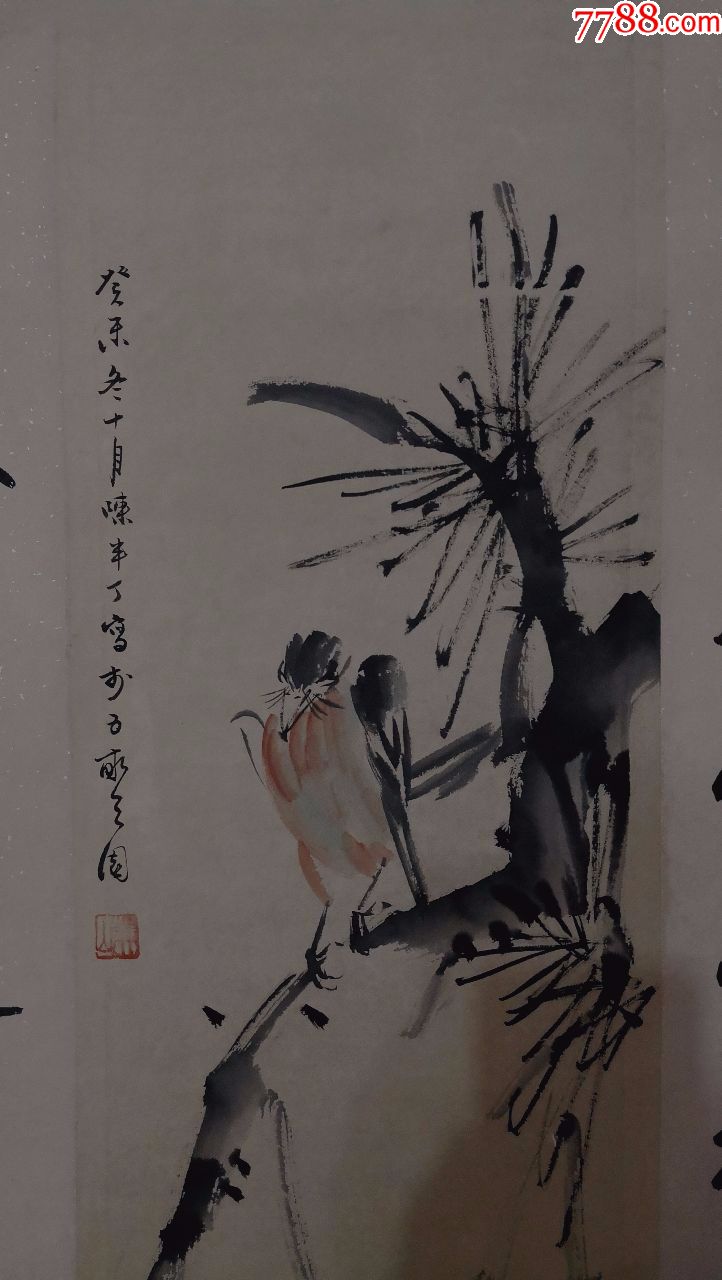 7788.com
癸未冬十月陳半丁寫於五畝之園